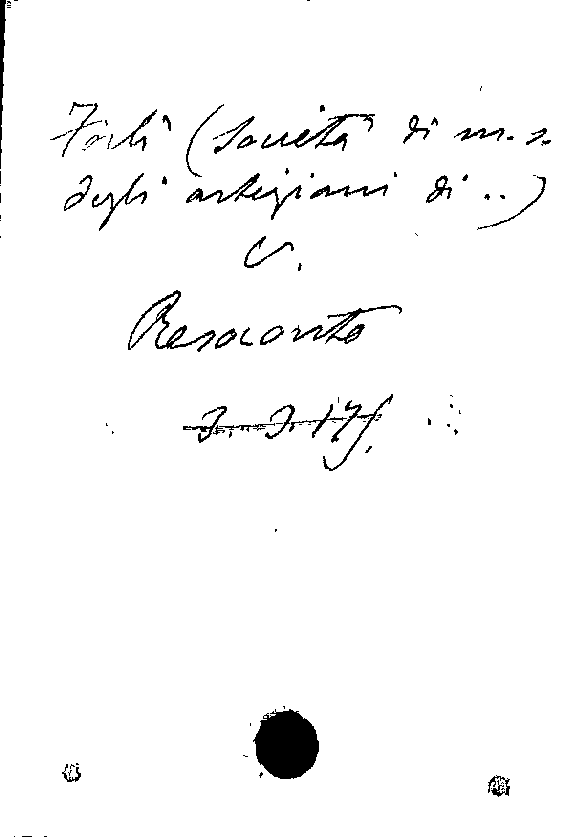 Forlì (Società di m. s.
degli artigiani di ..)
v.
Resoconto
3. 3. 17